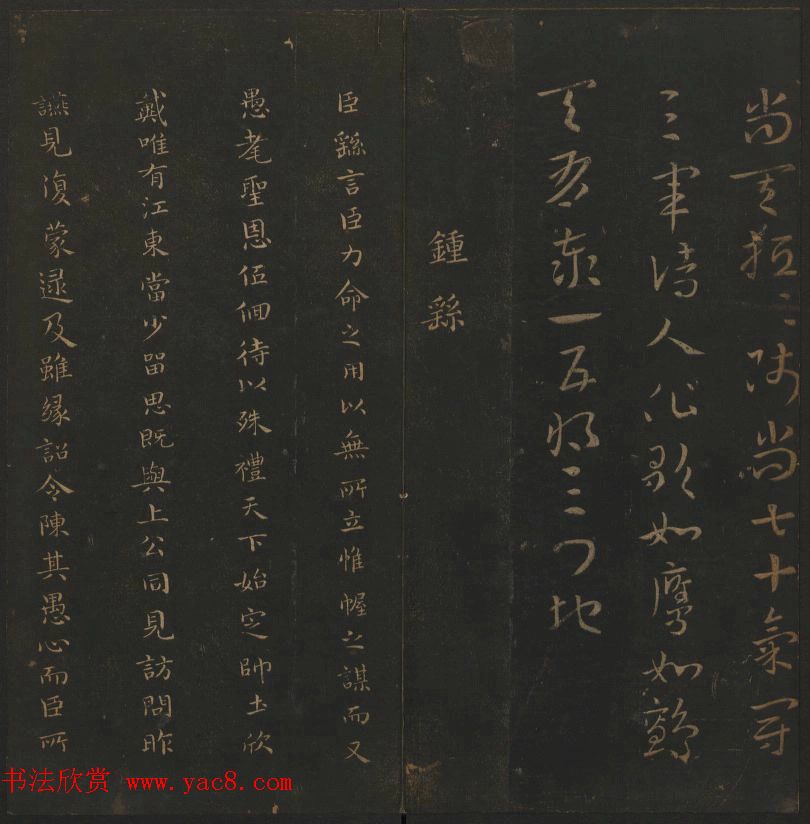 尚其桓桓呂尚七十氣冠
三軍詩人作歌如鷹如鸇
天有泰一五將三門地
鍾繇
臣繇言臣力命之用以無所立惟幄之謀而又
愚耄聖恩伍佪待以殊禮天下始定帥土欣
戴唯有江東當少留思既與上公同見訪問昨
讌見復蒙逮及雖緣詔令陳其愚心而臣所
书法欣赏 www.yac8.com